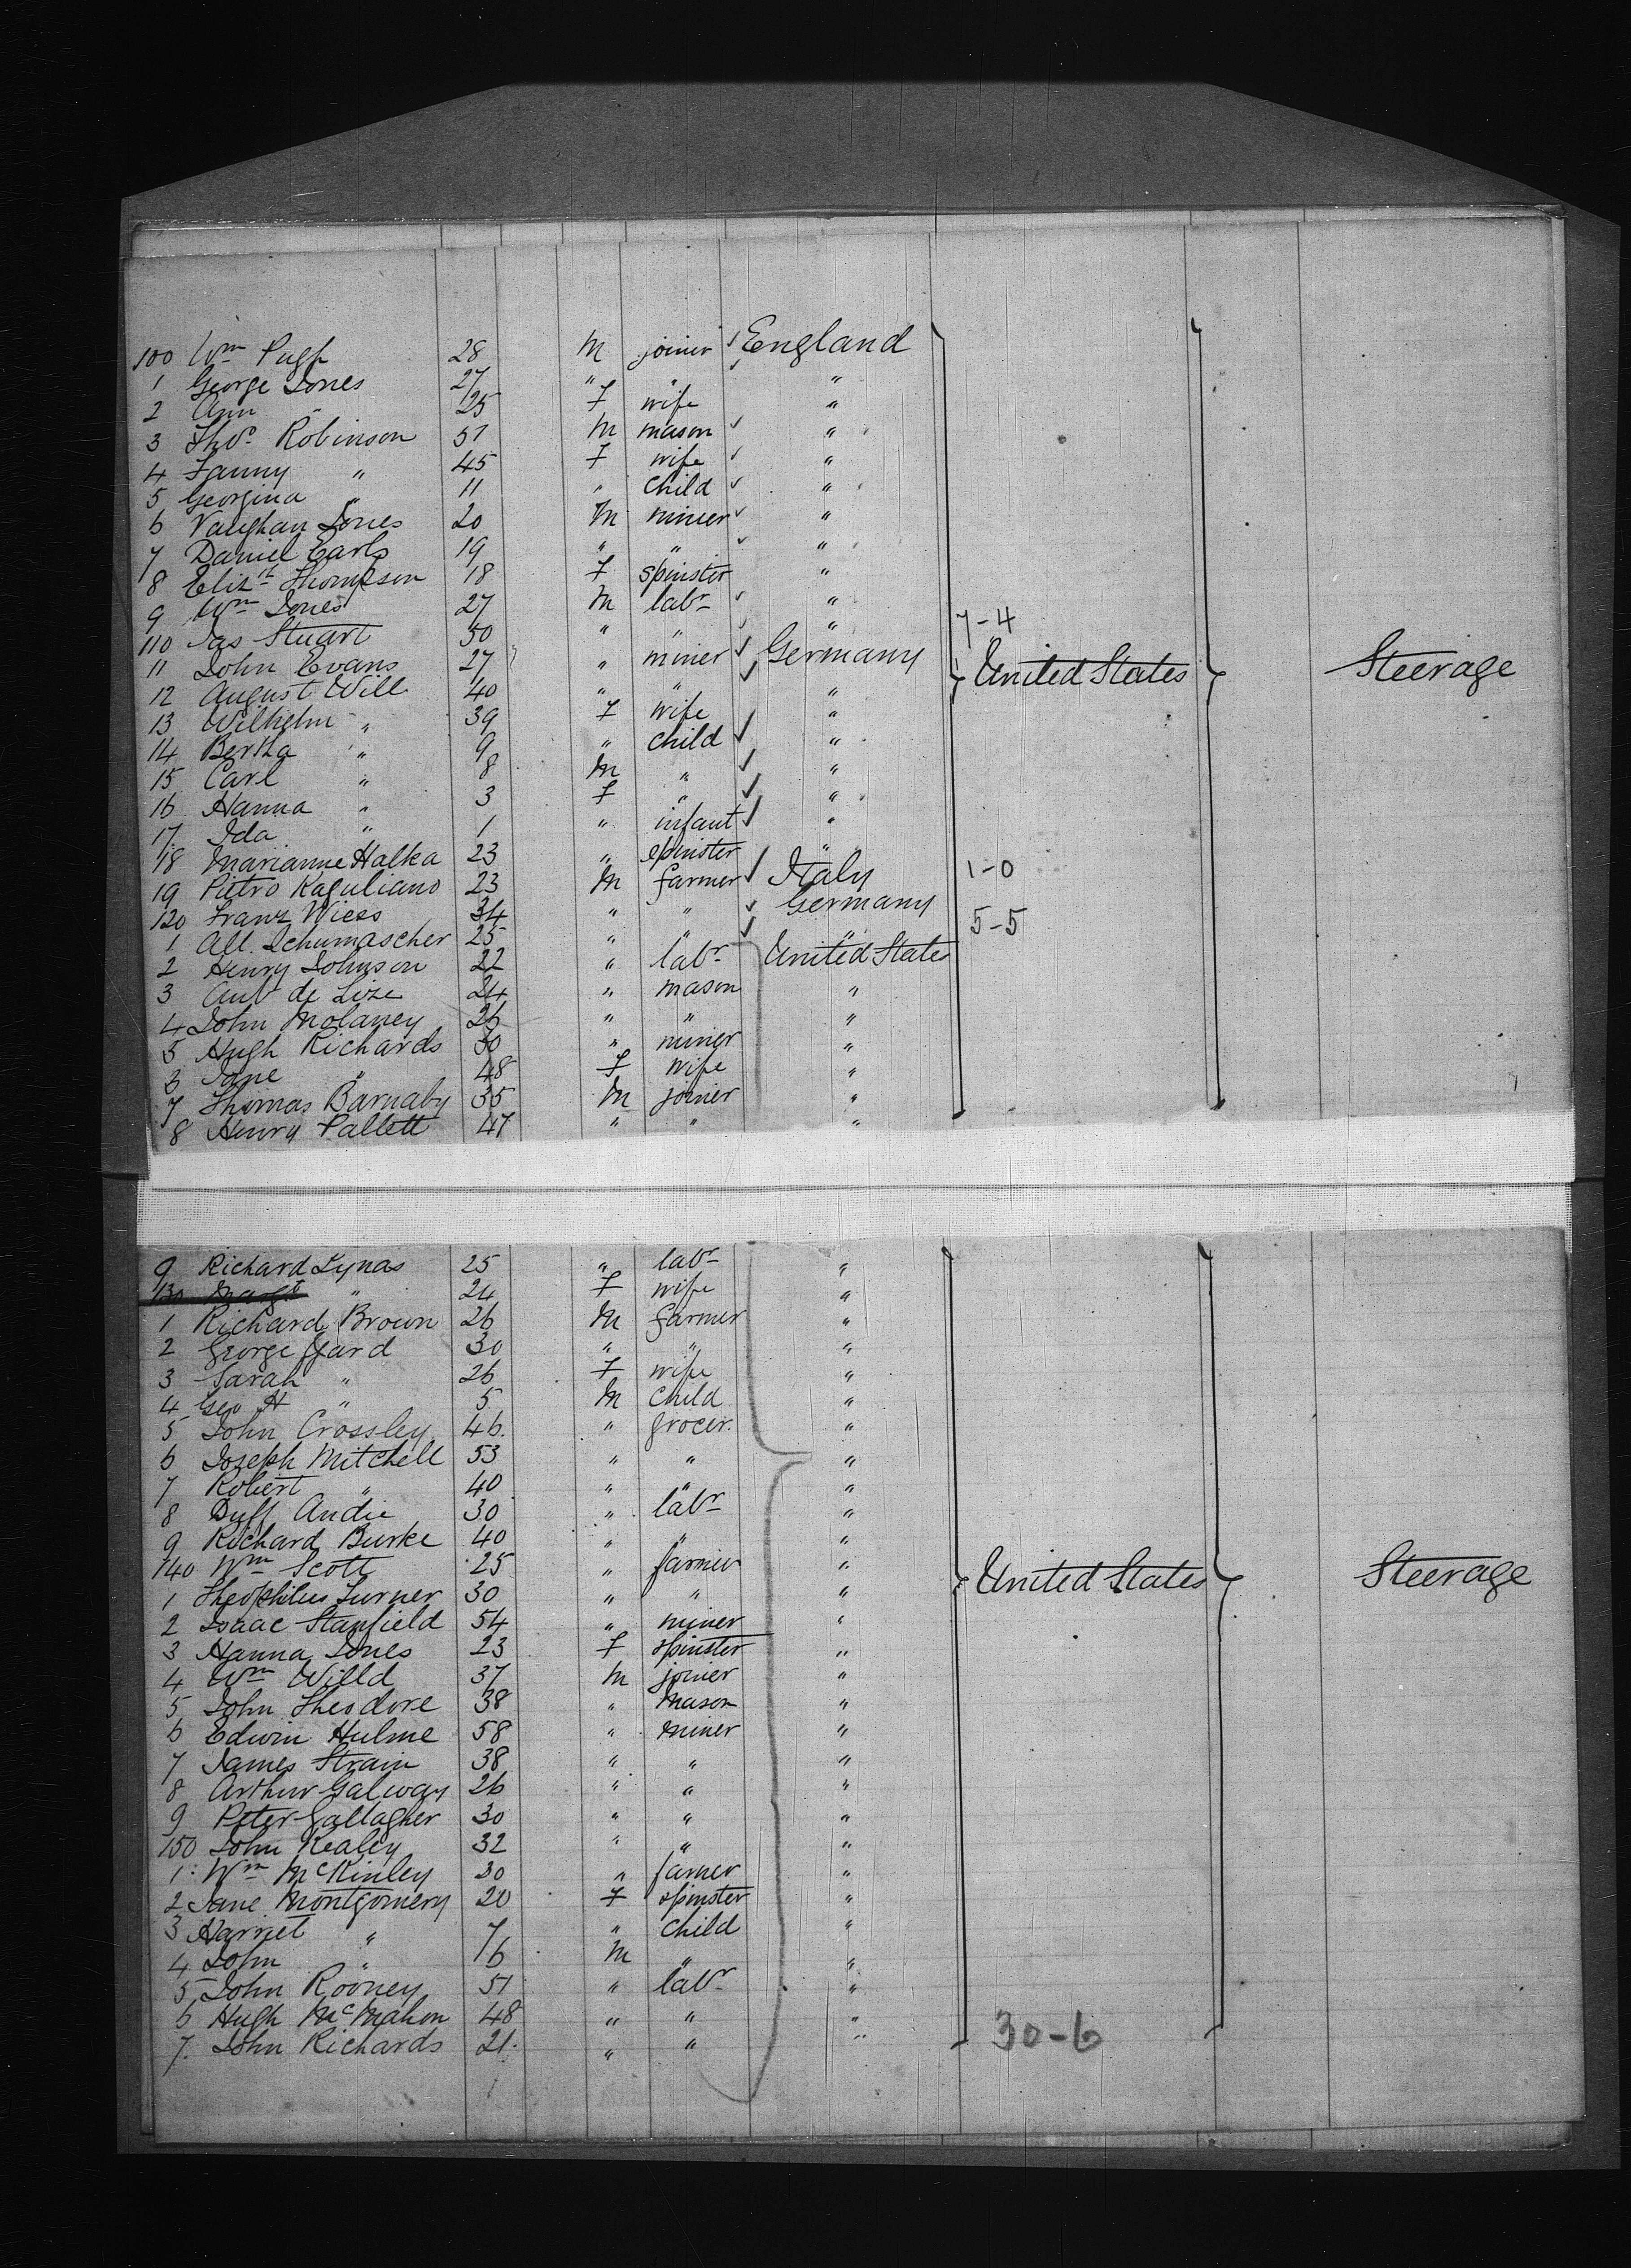 100 Wm Pugh 28 M joiner England
1 George Jones 27 " " "
2 Ann " 25 F wife "
3 Thos. Robinson 51 M mason "
4 Fanny " 45 F wife "
5 Georgina " 11 " child "
6 Vaughan Jones 20 M miner "
7 Daniel Earls 19 " " "
8 Elizth Thompson 18 F spinster "
9 Wm Jones 27 M labr "
110 Jas Stuart 50 " " " 7-4
11 John Evans 27 " miner Germany United States Steerage
12 August Will 40 " " "
13 Wilhelm " 39 F wife "
14 Bertha " 9 " child "
15 Carl " 8 M " "
16 Hanna " 3 F " "
17. Ida " 1 " infant "
18 Marianne Halka 23 " spinster "
19 Pietro Raguliano 23 M farmer Italy 1-0
120 Franz Wiess 34 " " Germany
1 All. Schumascher 25 " " " 5-5
2 Henry Johnson 22 " labr United States
3 Ant de Lize 24 " mason "
4 John Molaney 26 " " "
5 Hugh Richards 30 " miner "
6 Jane " 48 F wife "
7 Thomas Barnaby 35 M joiner "
8 Henry Pallett 47 " " "
9 Richard Lynas 25 " labr "
130 Margt " 24 F wife "
1 Richard Brown 26 M farmer "
2 George Gard 30 " " "
3 Sarah " 26 F wife "
4 Geo H " 5 M child "
5 John Crossley 46. " grocer. "
6 Joseph Mitchell 53 " " "
7 Robert " 40 " " "
8 Duff Andie 30 " labr "
9 Richard Burke 40 " " "
140 Wm Scott 25 " farmer " United States Steerage
1 Theophilus Turner 30 " " "
2 Isaac Stanfield 54 " miner "
3 Hanna Jones 23 F spinster "
4 Wm Willd 37 M joiner "
5 John Theodore 38 " mason "
6 Edwin Hulme 58 " miner "
7 James Strain 38 " " "
8 Arthur Galway 26 " " "
9 Peter Gallagher 30 " " "
150 John Kealey 32 " " "
1 Wm McKinley 30 " farmer "
2 Jane Montgomery 20 F spinster "
3 Harriet " 7 " child "
4 John " 6 M " "
5 John Rooney 51 " labr "
6 Hugh McMahon 48 " " "
7. John Richards 21. " " " 30-6